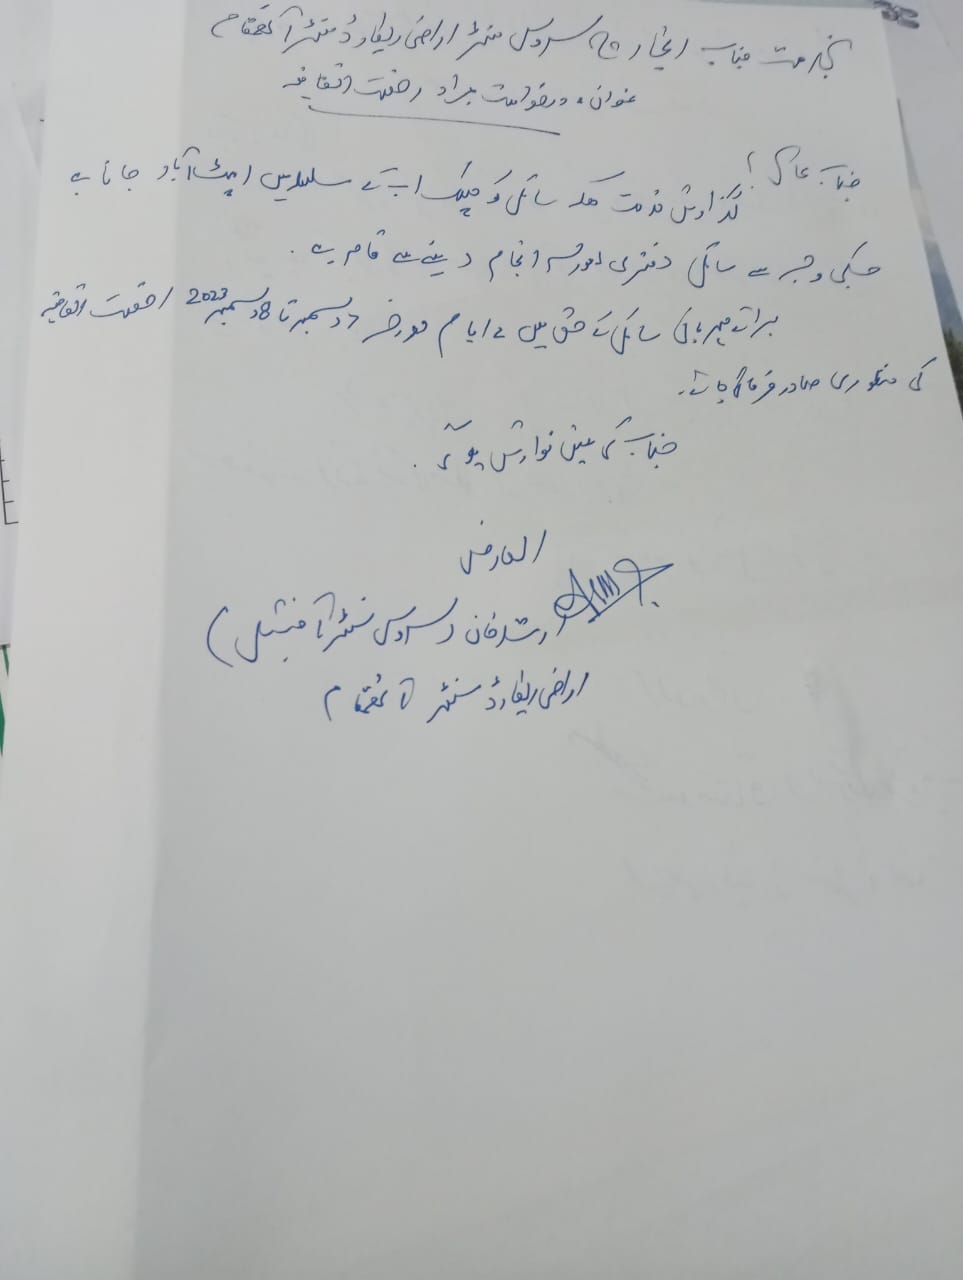 بخدمت جناب انچارج سروس سنٹر اراضی ریکارڈ سنٹر
عنوان: درخواست بمراد رخصت اتفاقیہ
جناب عالی!
گزارش خدمت ہیکہ سائل کو چیک اپ کے سلسلے میں ایبٹ آباد جانا ہے
جسکی وجہ سے سائل دفتری امور سر انجام دینے سے قاصر ہے.
برائے مہربانی سائل کے حق میں 2 ایام مورخہ 7 دسمبر تا 8 دسمبر 2023 رخصت اتفاقیہ
کی منظوری صادر فرمائی جائے.
جناب کی عین نوازش ہوگی.
العارض
ارشد خان (سروس سنٹر آفیشل)
اراضی ریکارڈ سنٹر